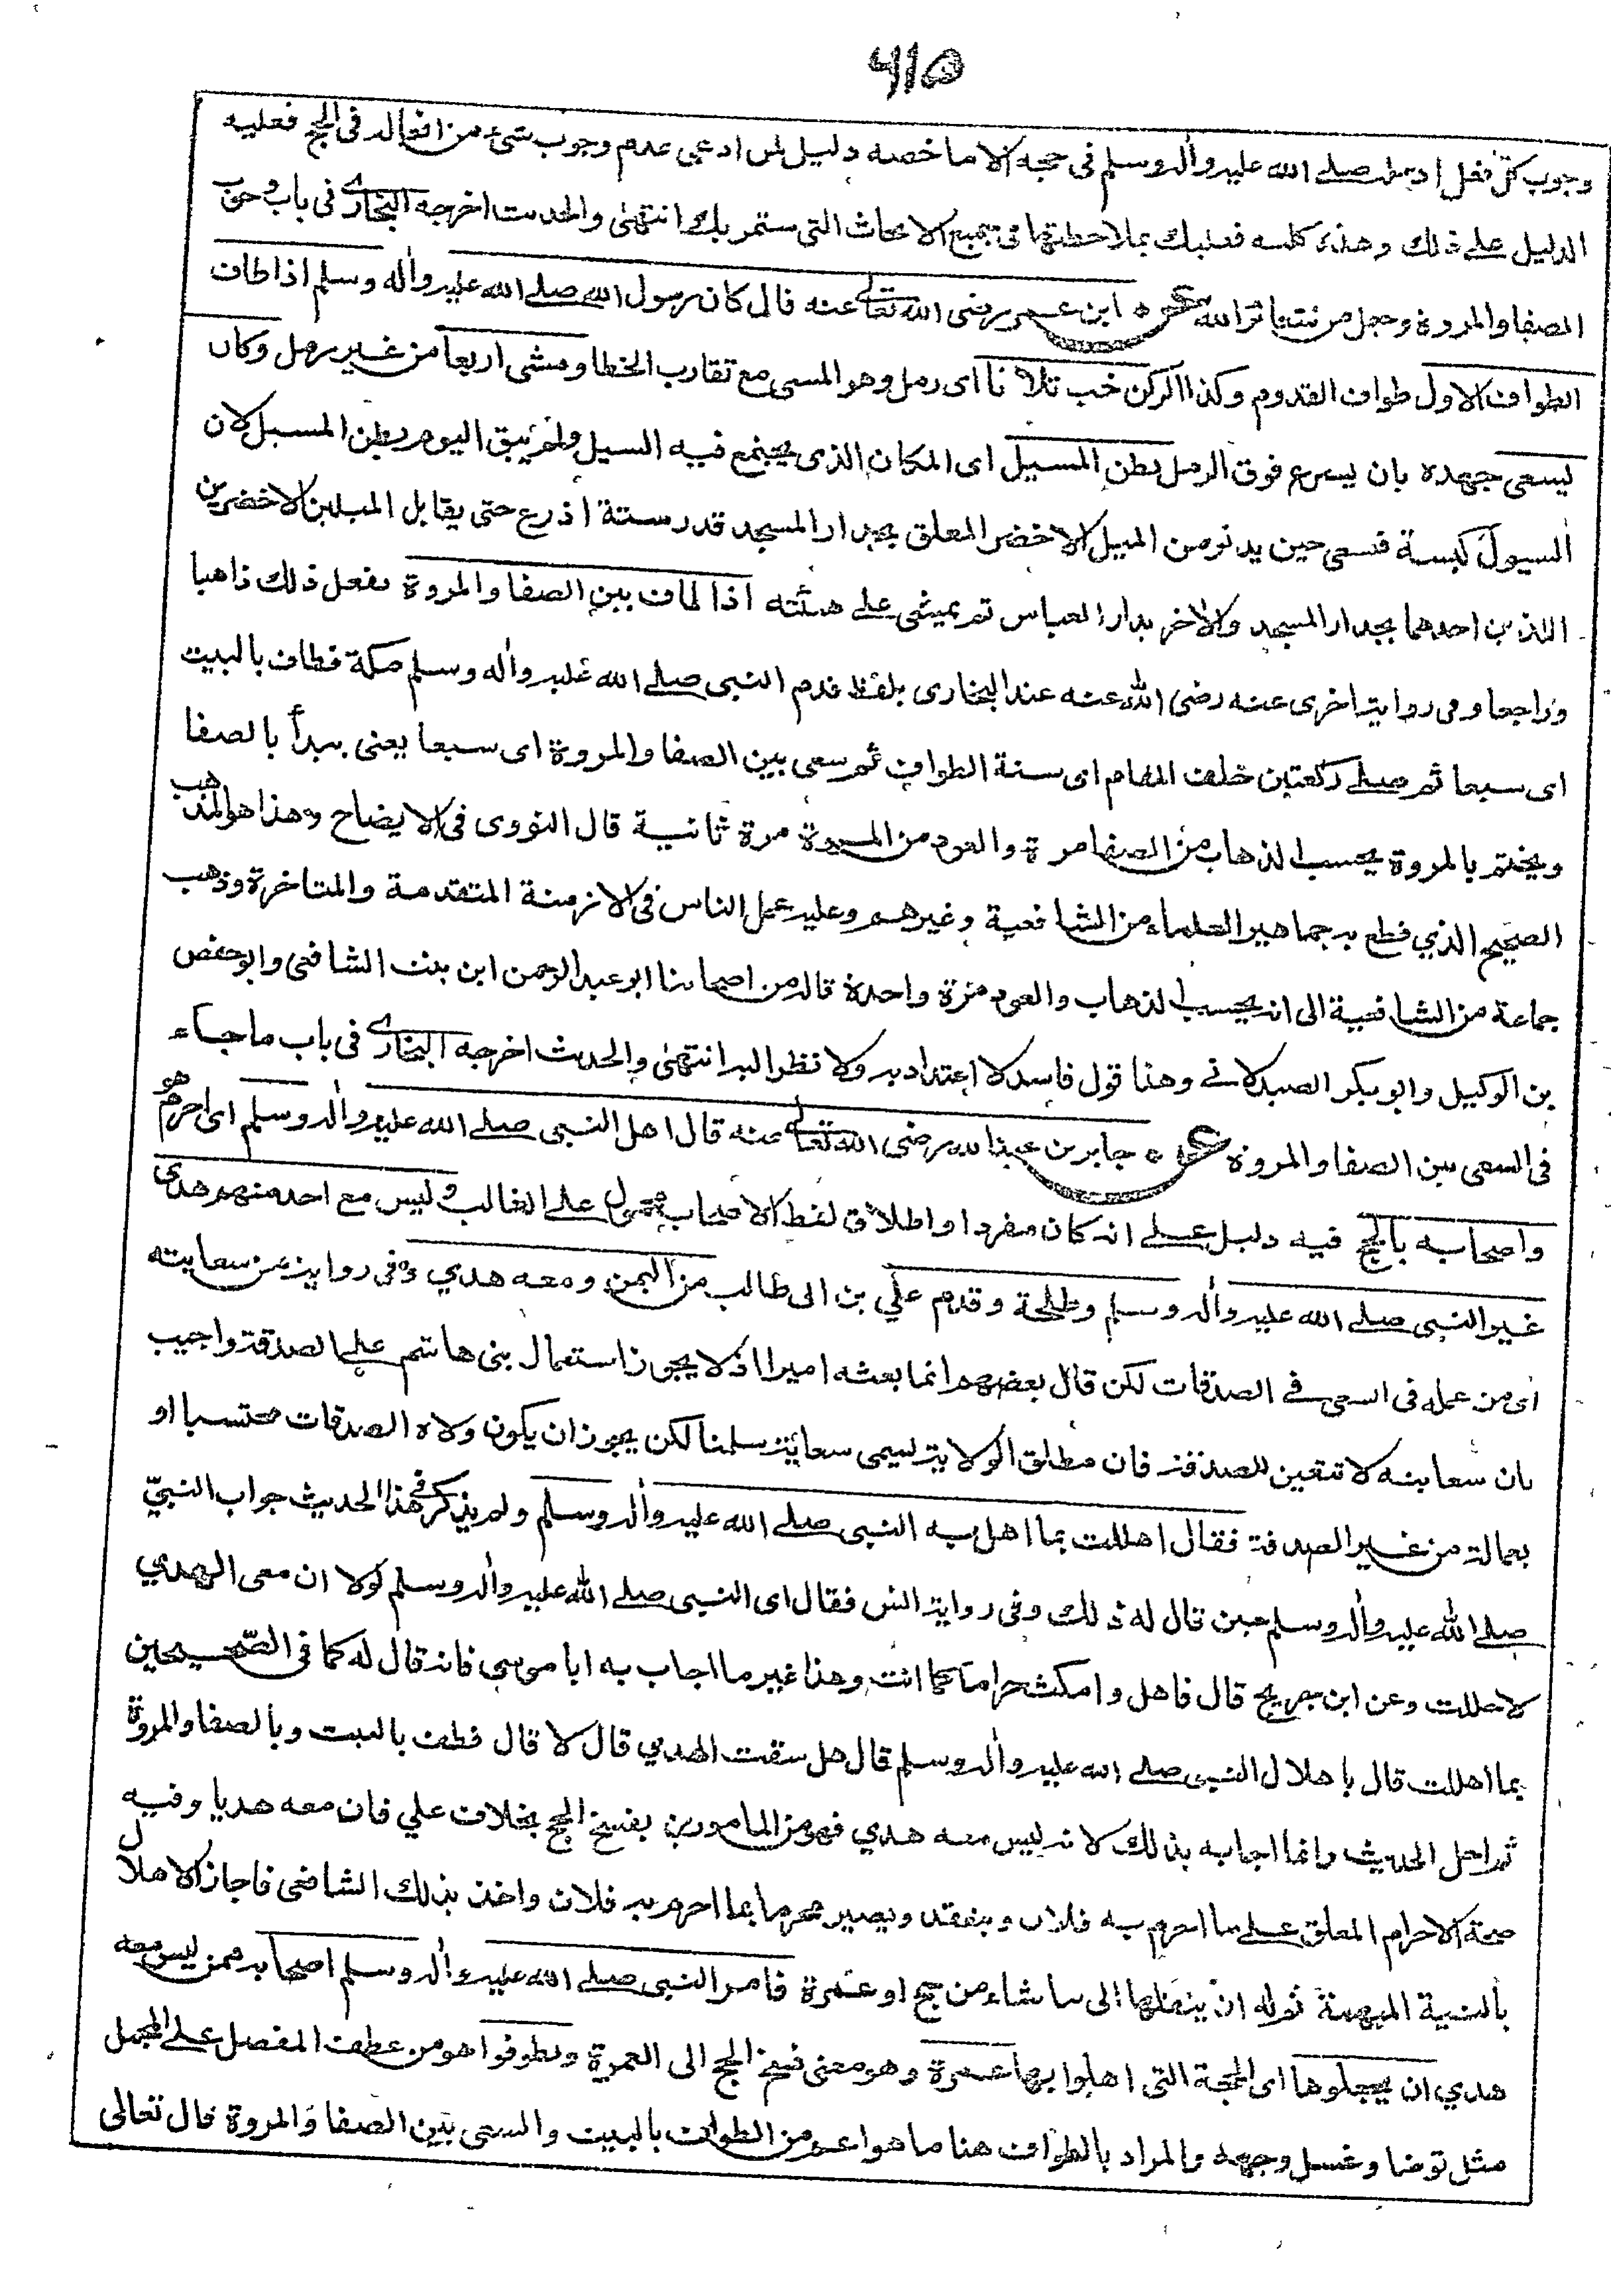 ٦١٥
وجوب كل فعل اد صلے الله عليه واٰله وسلم فى حجه الا ما خصه دليل لمن ادعى عدم وجوب شىء من افعاله فى الحج فعليه
الدليل على ذلك وهذه كلسه فعليك بملاحظتها فى جميع الابحاث التى ستمر بك انتهىٰ والحديث اخرجه البخارى فى باب وجوب
الصفا والمروة وجعل من شعائر الله عن ابن عمر رضى الله تعالے عنه قال كان رسول الله صلے الله عليه واٰله وسلم اذا طاف
الطواف الاول طواف القدوم وكذا الركن خب ثلاثا اى رمل وهو المسى مع تقارب الخطا ومشى اربعا من غير رمل وكان
ليسعى جهده بان يسرع فوق الرمل بطن المسيل اى المكان الذى يجتمع فيه السيل ولم يبق اليوم بطن المسيل لان
السيول كبسة فسعى حين يدنو من الميل الاخضر المعلق بجدار المسجد قدر ستة اذرع حتى يقابل الميلين الاخضرين
اللذين احدهما بجدار المسجد والاٰخر بدار العباس ثم يمشى على هيئته اذا طاف بين الصفا والمروة يفعل ذلك ذاهبا
وراجعا وفى رواية اخرى عنه رضى الله عنه عند البخارى بلفظ قدم النبى صلے الله عليه واٰله وسلم مكة فطاف بالبيت
اى سبعا ثم صلے ركعتين خلف المقام اى سنة الطواف ثم سعى بين الصفا والمروة اى سبعا يعنى يبدأ بالصفا
ويختم بالمروة يحسب الذهاب من الصفا مرة والعود من المروة مرة ثانية قال النووى فى الايضاح وهذا هو المذهب
الصحيح الذي قطع به جماهير العلماء من الشافعية وغيرهم وعليه عمل الناس فى الازمنة المتقدمة والمتاخرة وذهب
جماعة من الشافعية الى انه يحسب الذهاب والعود مرة واحدة قاله من اصحابنا ابو عبد الرحمن ابن بنت الشافعى وابو حفص
بن الوكيل وابو بكر الصيدلانے وهذا قول فاسد لا اعتداد به ولا نظر اليه انتهىٰ والحديث اخرجه البخارى فى باب ما جاء
فى السعى بين الصفا والمروة عن جابر بن عبد الله رضى الله تعالے عنه قال اهل النبى صلے الله عليه واٰله وسلم اى احرم هو
واصحابه بالحج فيه دليل علے انه كان مفردا واطلاق لفظ الاصحاب محمول علے الغالب وليس مع احد منهم هدى
غير النبى صلے الله عليه واٰله وسلم وطلحة وقدم علي بن ابى طالب من اليمن ومعه هدي وفى رواية من سعايته
اى من عمله فى السعى فے الصدقات لكن قال بعضهم انما بعثه اميرا اذ لا يجوز استعمال بنى هاشم على الصدقة واجيب
بان سعايته لا تتعين للصدقة فان مطلق الولاية تسمى سعاية سلمنا لكن يجوز ان يكون ولاه الصدقات محتسبا او
بعمالة من غير الصدقة فقال اهللت بما اهل به النبى صلے الله عليه واٰله وسلم ولم يذكر فے هذا الحديث جواب النبيّ
صلے الله عليه واٰله وسلم حين قال له ذلك وفى رواية انس فقال اى النبى صلے الله عليه واٰله وسلم لولا ان معى الهدي
لاحللت وعن ابن جريج قال فاهل وامكث حراما كما انت وهذا غير ما اجاب به ابا موسى فانه قال له كما فى الصّحيحين
بما اهللت قال باهلال النبى صلے الله عليه واٰله وسلم قال هل سقت الهدي قال لا قال فطف بالبيت وبالصفا والمروة
ثم احل الحديث وانما اجابه بذلك لانه ليس معه هدي فهو من المامورين بفسخ الحج بخلاف علي فان معه هديا وفيه
صحة الاحرام المعلق علے ما احرم به فلان وينعقد ويصير محرما بما احرم به فلان واخذ بذلك الشافعى فاجاز الاهلال
بالنية المبهمة ثم له ان ينقلها الى ما شاء من حج او عمرة فامر النبى صلے الله عليه واٰله وسلم اصحابه ممن ليس معه
هدي ان يجعلوها اى الحجة التى اهلوا بها عمرة وهو معنى فسخ الحج الى العمرة ويطوفوا هو من عطف المفصل على المجمل
مثل توضا وغسل وجهه والمراد بالطواف هنا ما هو اعم من الطواف بالبيت والسعى بين الصفا والمروة قال تعالى